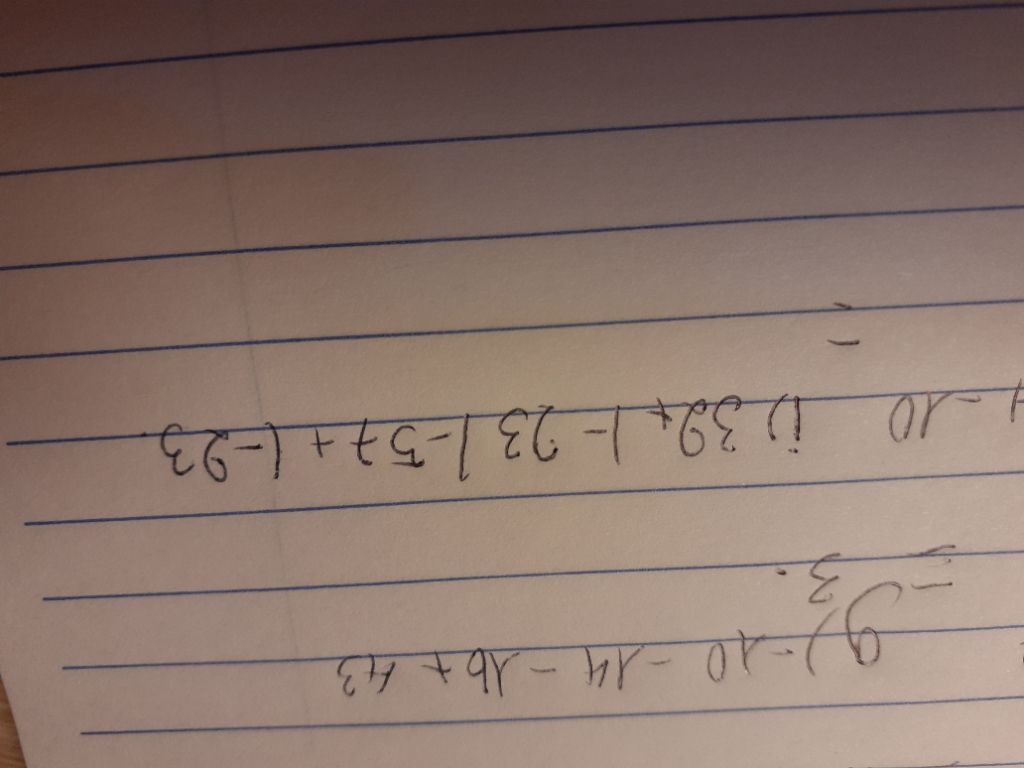 g) -10 - 14 - 16 + 43
= 3.
- 10 i) 39 + |-23|-57 + (-23
=